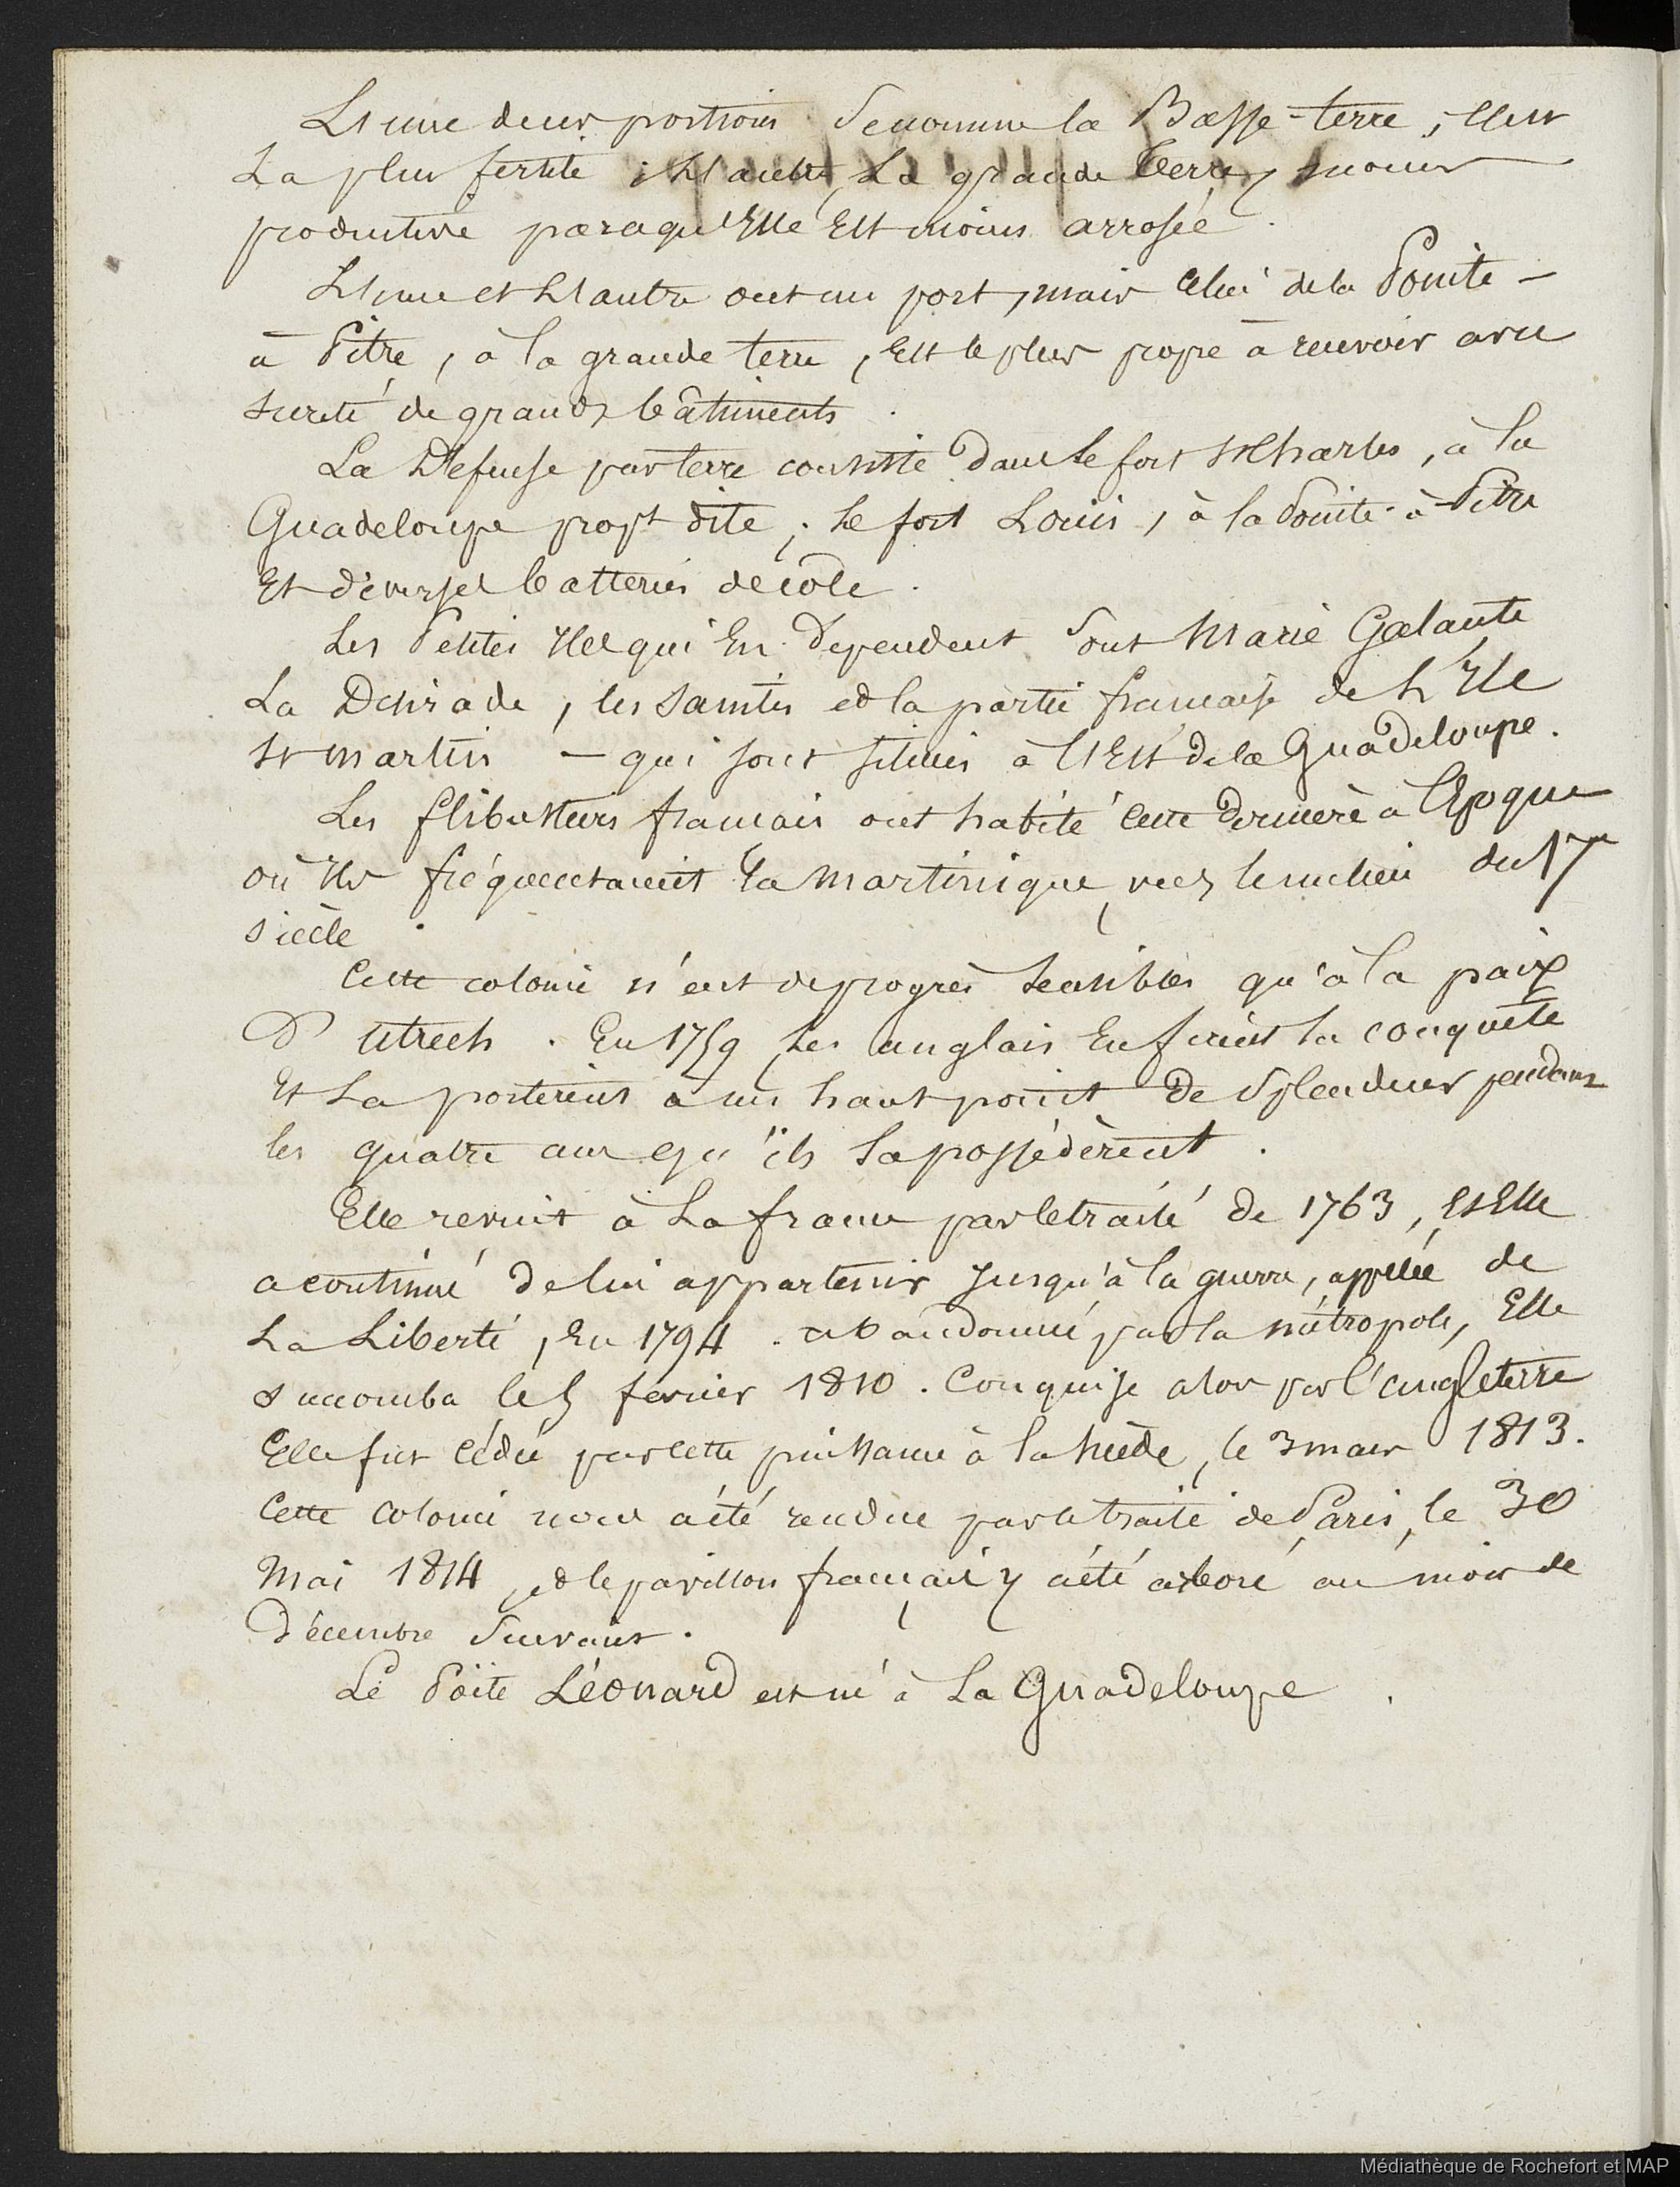 L'une deux portions se nomme la Basse-terre, c'est
La plus fertile ; L'autre, La grande terre, moins
productive parcequ'Elle Est moins arrosée.
L'une et L'autre ont un port, mais celui de la Pointe-
à Pitre, à la grande terre, Est le plus propre à recevoir avec
sureté de grands bâtiments.
La Défense par terre consiste dans le fort St Charles, à la
Guadeloupe propt dite ; Le fort Louis, à la Pointe-à-Pitre
Et diverses batteries de côte.
Les Petites Iles qui En Dependent sont Marie Galante
La Désirade, les saintes et la partie francaise de L'Ile
St martin — qui sont situées à l'Est de la Guadeloupe.
Les flibustiers francais ont habité cette Dernière à l'Epoque
où Ils fréquentaient La martinique, vers le milieu du 17
siècle.
Cette colonie n'eut de progrès sensibles qu'à la paix
D'Utrech. En 1759 Les anglais En firent la conquête
Et La portèrent à un haut point De Splendeur pendant
les quatre ans qu'ils La possédèrent.
Elle revint à La france par le traité de 1763, Et Elle
a continué de lui appartenir jusqu'à la guerre, appelée de
La Liberté, En 1794. abandonnée par la métropole, Elle
succomba le 5 fevrier 1810. Conquise alors par l'angleterre
Elle fut cédée par cette puissance à la Suède, le 3 mars 1813.
Cette colonie nous a été rendue par le traité de Paris, le 30
Mai 1814, et le pavillon français y a été arboré au mois de
Décembre Suivant.
Le Poëte Léonard est né à La Guadeloupe.
Médiathèque de Rochefort et MAP